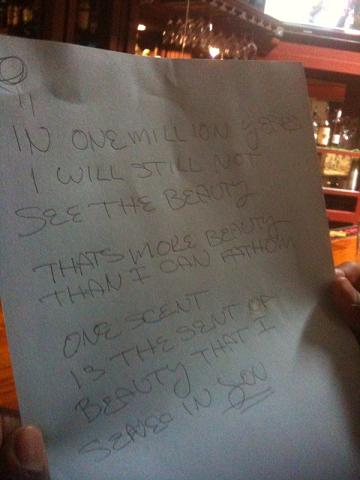 "
IN ONE MILLION years
I WILL STILL NOT
SEE THE BEAUTY
THATS MORE BEAUTY
THAN I CAN FATHOM
ONE SCENT
IS THE SENT OF
BEAUTY THAT I
IN you